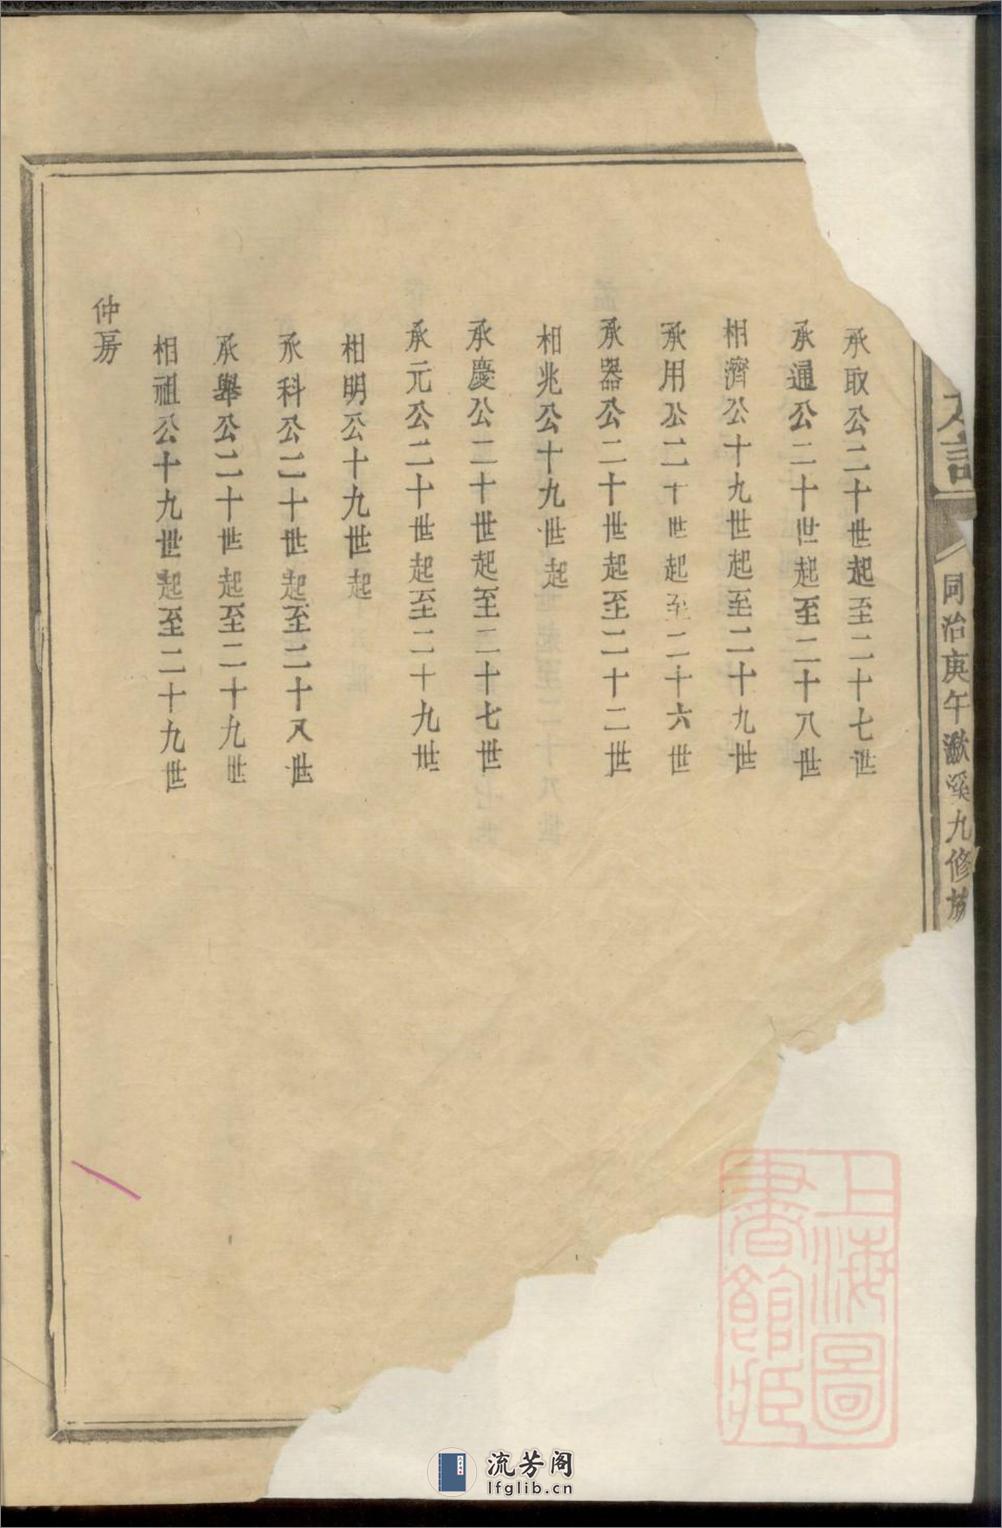 同治庚午瀫溪九修
承取公二十世起至二十七世
承通公二十世起至二十八世
相濟公十九世起至二十九世
承用公二十世起至二十六世
承器公二十世起至二十二世
相兆公十九世起
承慶公二十世起至二十七世
承元公二十世起至二十九世
相明公十九世起
承科公二十世起至二十八世
承舉公二十世起至二十九世
相祖公十九世起至二十九世
仲房
上海圖
書館藏
流芳阁
lfglib.cn